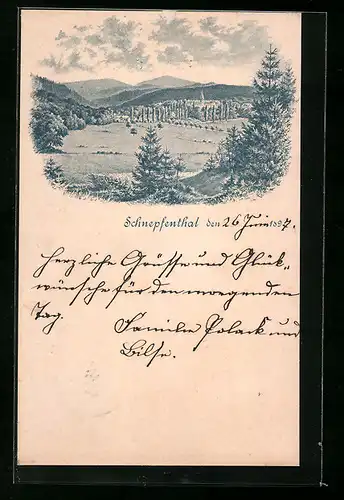 Schnepfenthal den 26 Juni 1897.
Herzliche Grüsse und Glück„
wünsche für den morgenden
Tag. Familie Polack und
Bilse.